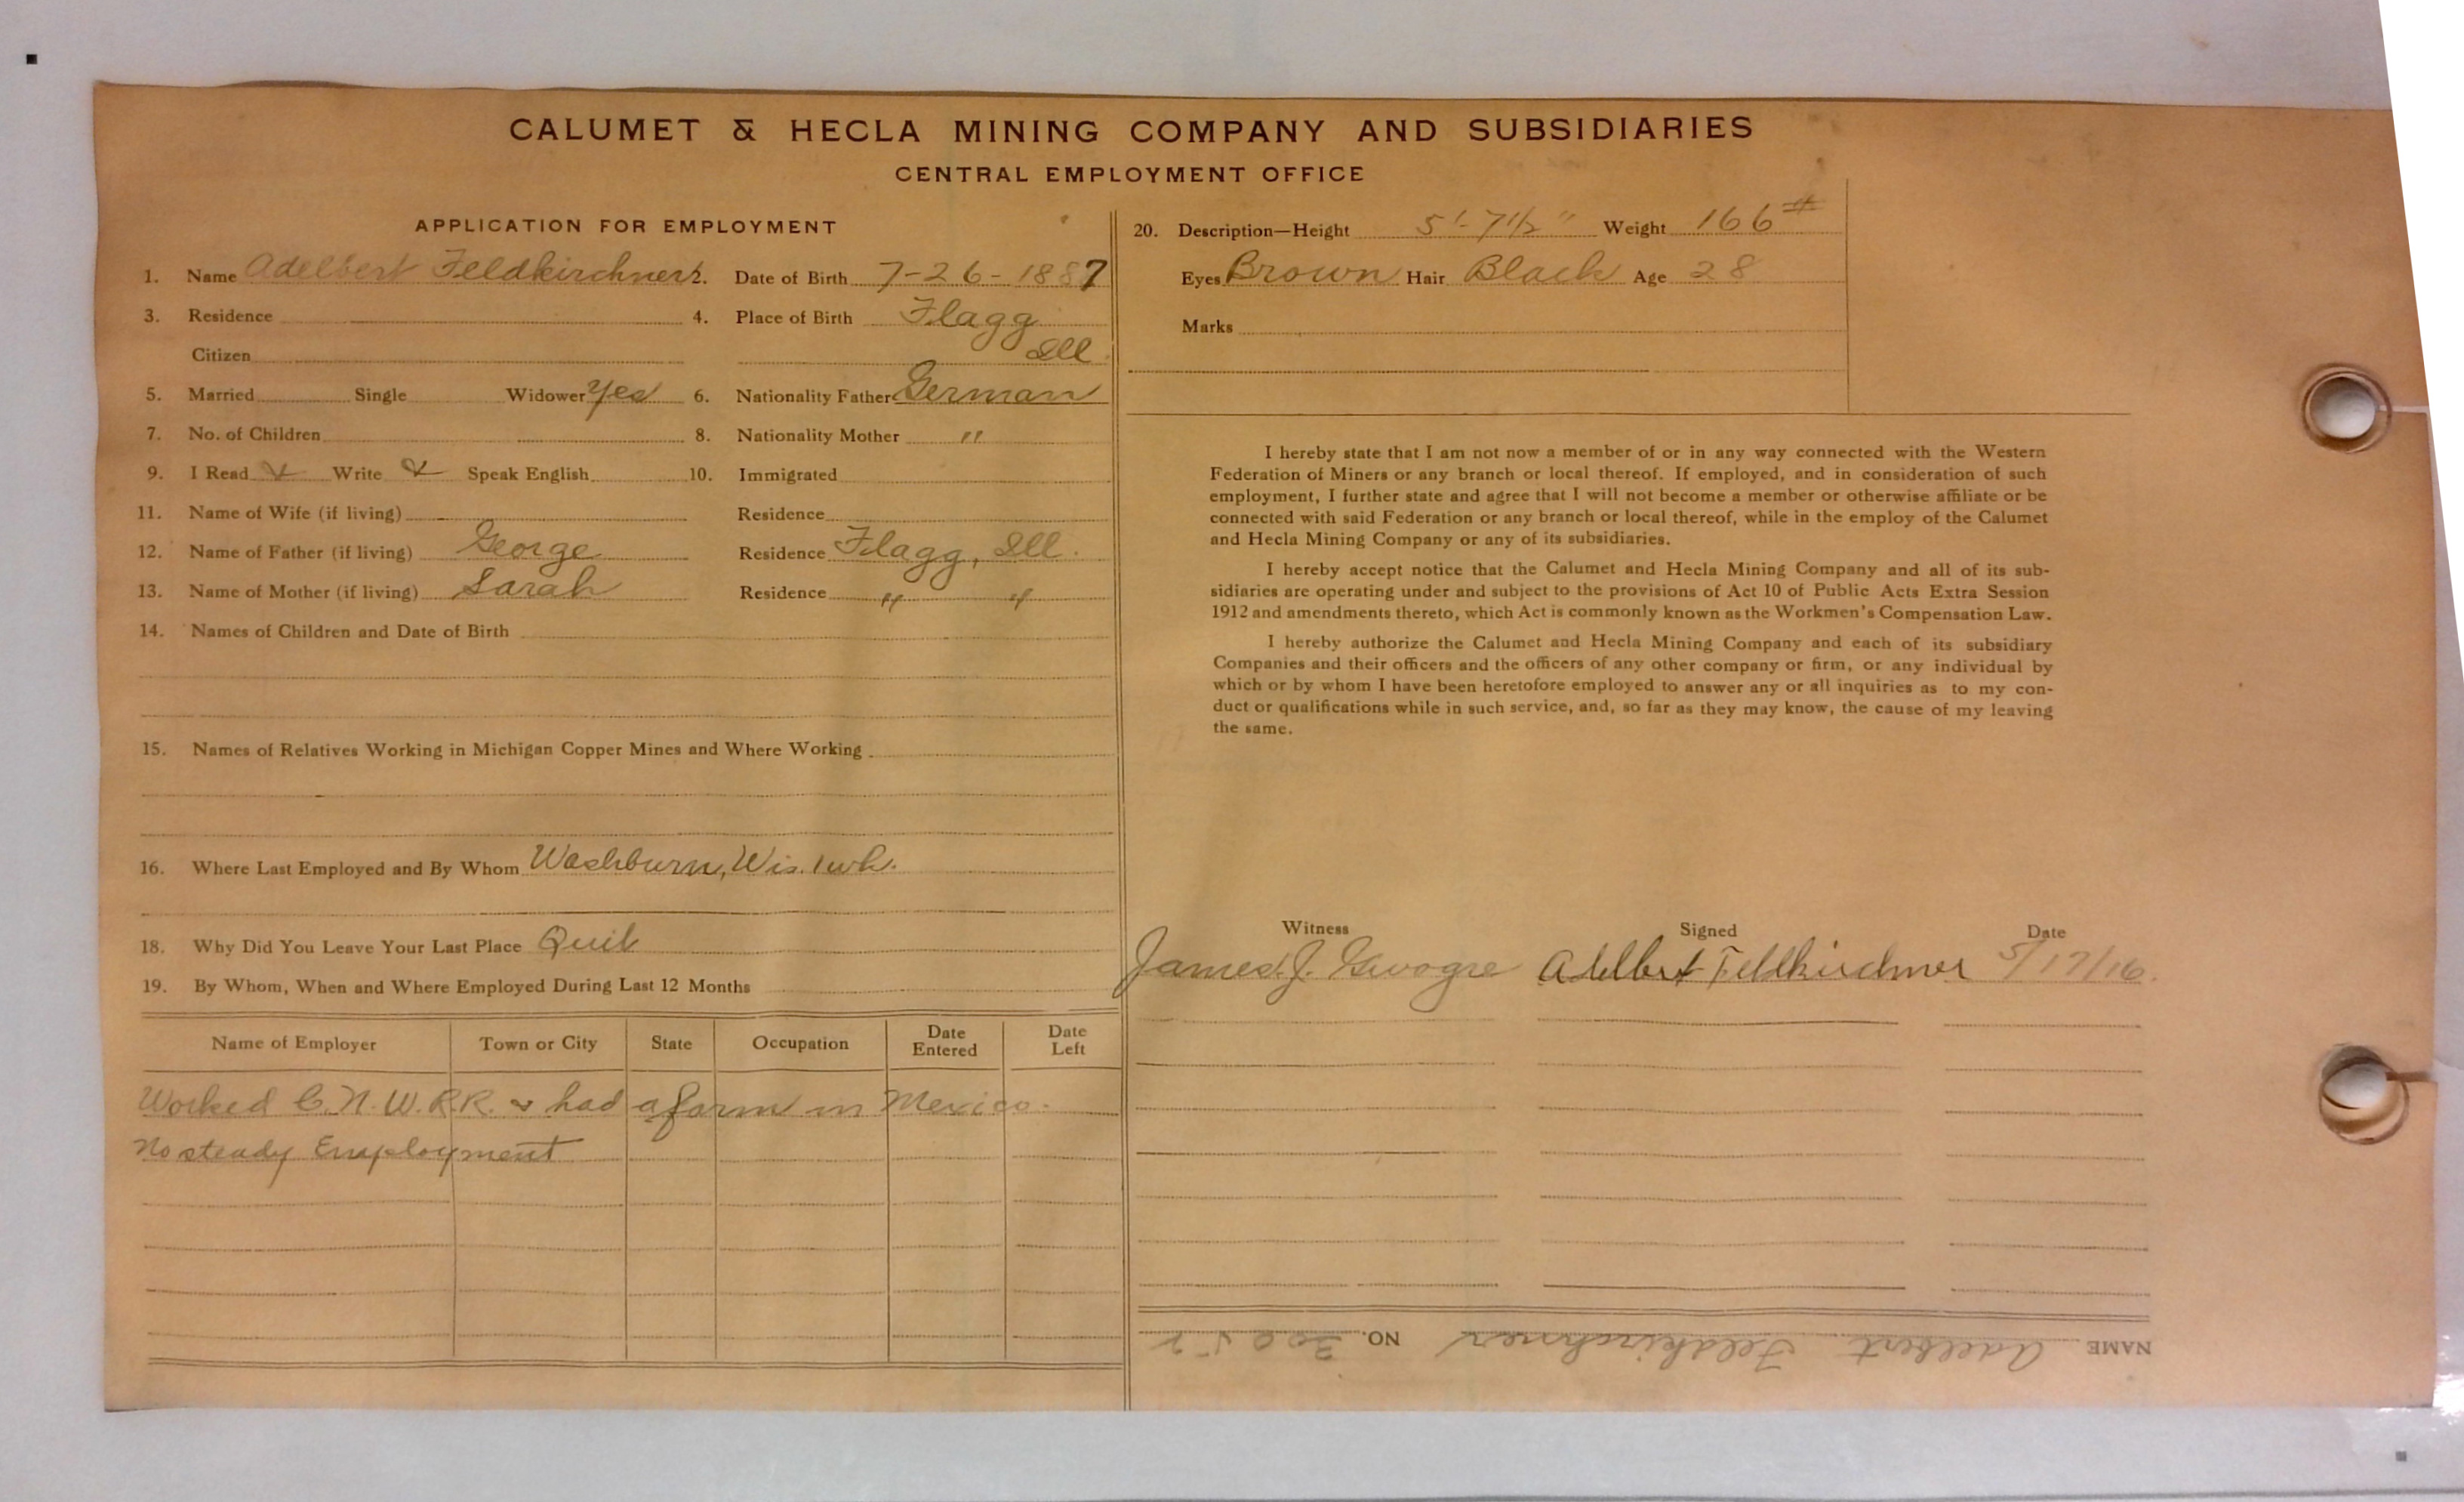 CALUMET & HECLA MINING COMPANY AND SUBSIDIARIES
CENTRAL EMPLOYMENT OFFICE
APPLICATION FOR EMPLOYMENT
1. Name Adelbert Feldkirchner 2. Date of Birth 7-26-1887
3. Residence 4. Place of Birth Flagg
Citizen Ill
5. Married Single Widower Yes 6. Nationality Father German
7. No. of Children 8. Nationality Mother "
9. I Read Write Speak English 10. Immigrated
11. Name of Wife (if living) Residence
12. Name of Father (if living) George Residence Flagg, Ill.
13. Name of Mother (if living) Sarah Residence " "
14. Names of Children and Date of Birth
15. Names of Relatives Working in Michigan Copper Mines and Where Working
16. Where Last Employed and By Whom Washburn, Wis. 1 wk.
18. Why Did You Leave Your Last Place Quit
19. By Whom, When and Where Employed During Last 12 Months
Name of Employer Town or City State Occupation Date Entered Date Left
Worked C.N.W.R.R. & had a farm in Mexico.
No steady Employment
20. Description—Height 5'-7 1/2" Weight 166#
Eyes Brown Hair Black Age 28
Marks
I hereby state that I am not now a member of or in any way connected with the Western
Federation of Miners or any branch or local thereof. If employed, and in consideration of such
employment, I further state and agree that I will not become a member or otherwise affiliate or be
connected with said Federation or any branch or local thereof, while in the employ of the Calumet
and Hecla Mining Company or any of its subsidiaries.
I hereby accept notice that the Calumet and Hecla Mining Company and all of its sub-
sidiaries are operating under and subject to the provisions of Act 10 of Public Acts Extra Session
1912 and amendments thereto, which Act is commonly known as the Workmen's Compensation Law.
I hereby authorize the Calumet and Hecla Mining Company and each of its subsidiary
Companies and their officers and the officers of any other company or firm, or any individual by
which or by whom I have been heretofore employed to answer any or all inquiries as to my con-
duct or qualifications while in such service, and, so far as they may know, the cause of my leaving
the same.
Witness Signed Date
James J. Adelbert Feldkirchner 5/17/16.
NAME Adelbert Feldkirchner NO. 30052